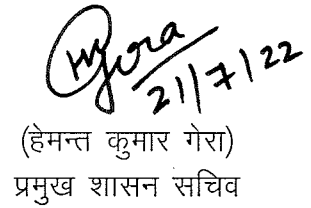 Hm Gera
21/7/22
(हेमन्त कुमार गेरा)
प्रमुख शासन सचिव